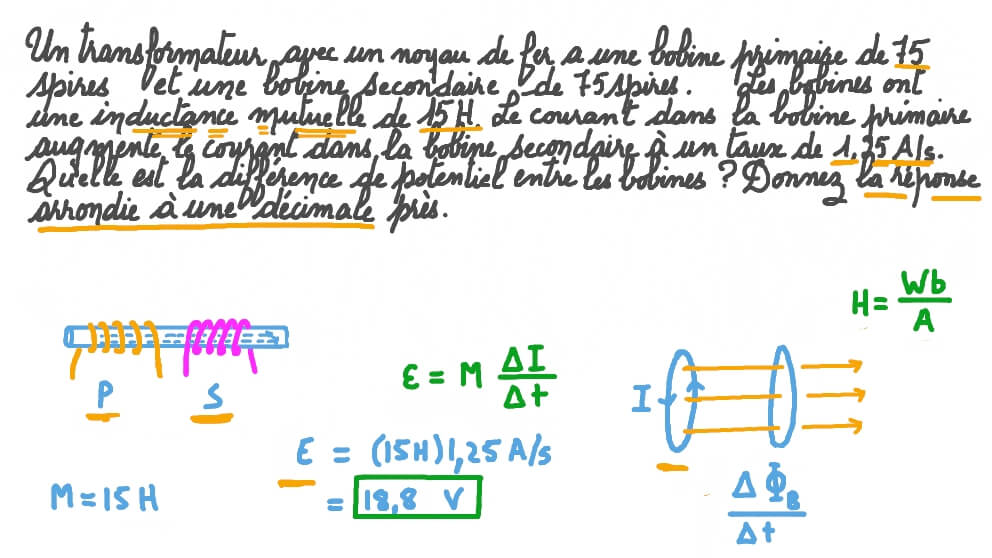 Un transformateur avec un noyau de fer a une bobine primaire de 75
spires et une bobine secondaire de 75 spires. Les bobines ont
une inductance mutuelle de 15 H. Le courant dans la bobine primaire
augmente le courant dans la bobine secondaire à un taux de 1,25 A/s.
Quelle est la différence de potentiel entre les bobines ? Donnez la réponse
arrondie à une décimale près.
H = Wb/A
P S
ε = M ΔI/Δt
I
ε = (15H)1,25 A/s
M = 15 H
= 18,8 V
ΔΦB/Δt